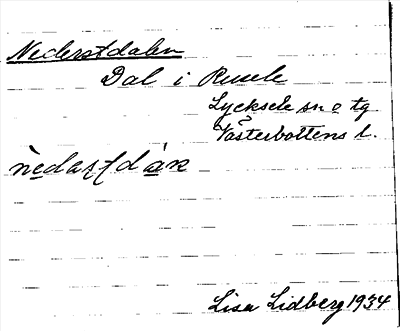 Nederstdalen
Dal i Rusele
Lycksele sn o tg
Västerbottens l.
Lisa Lidberg 1934